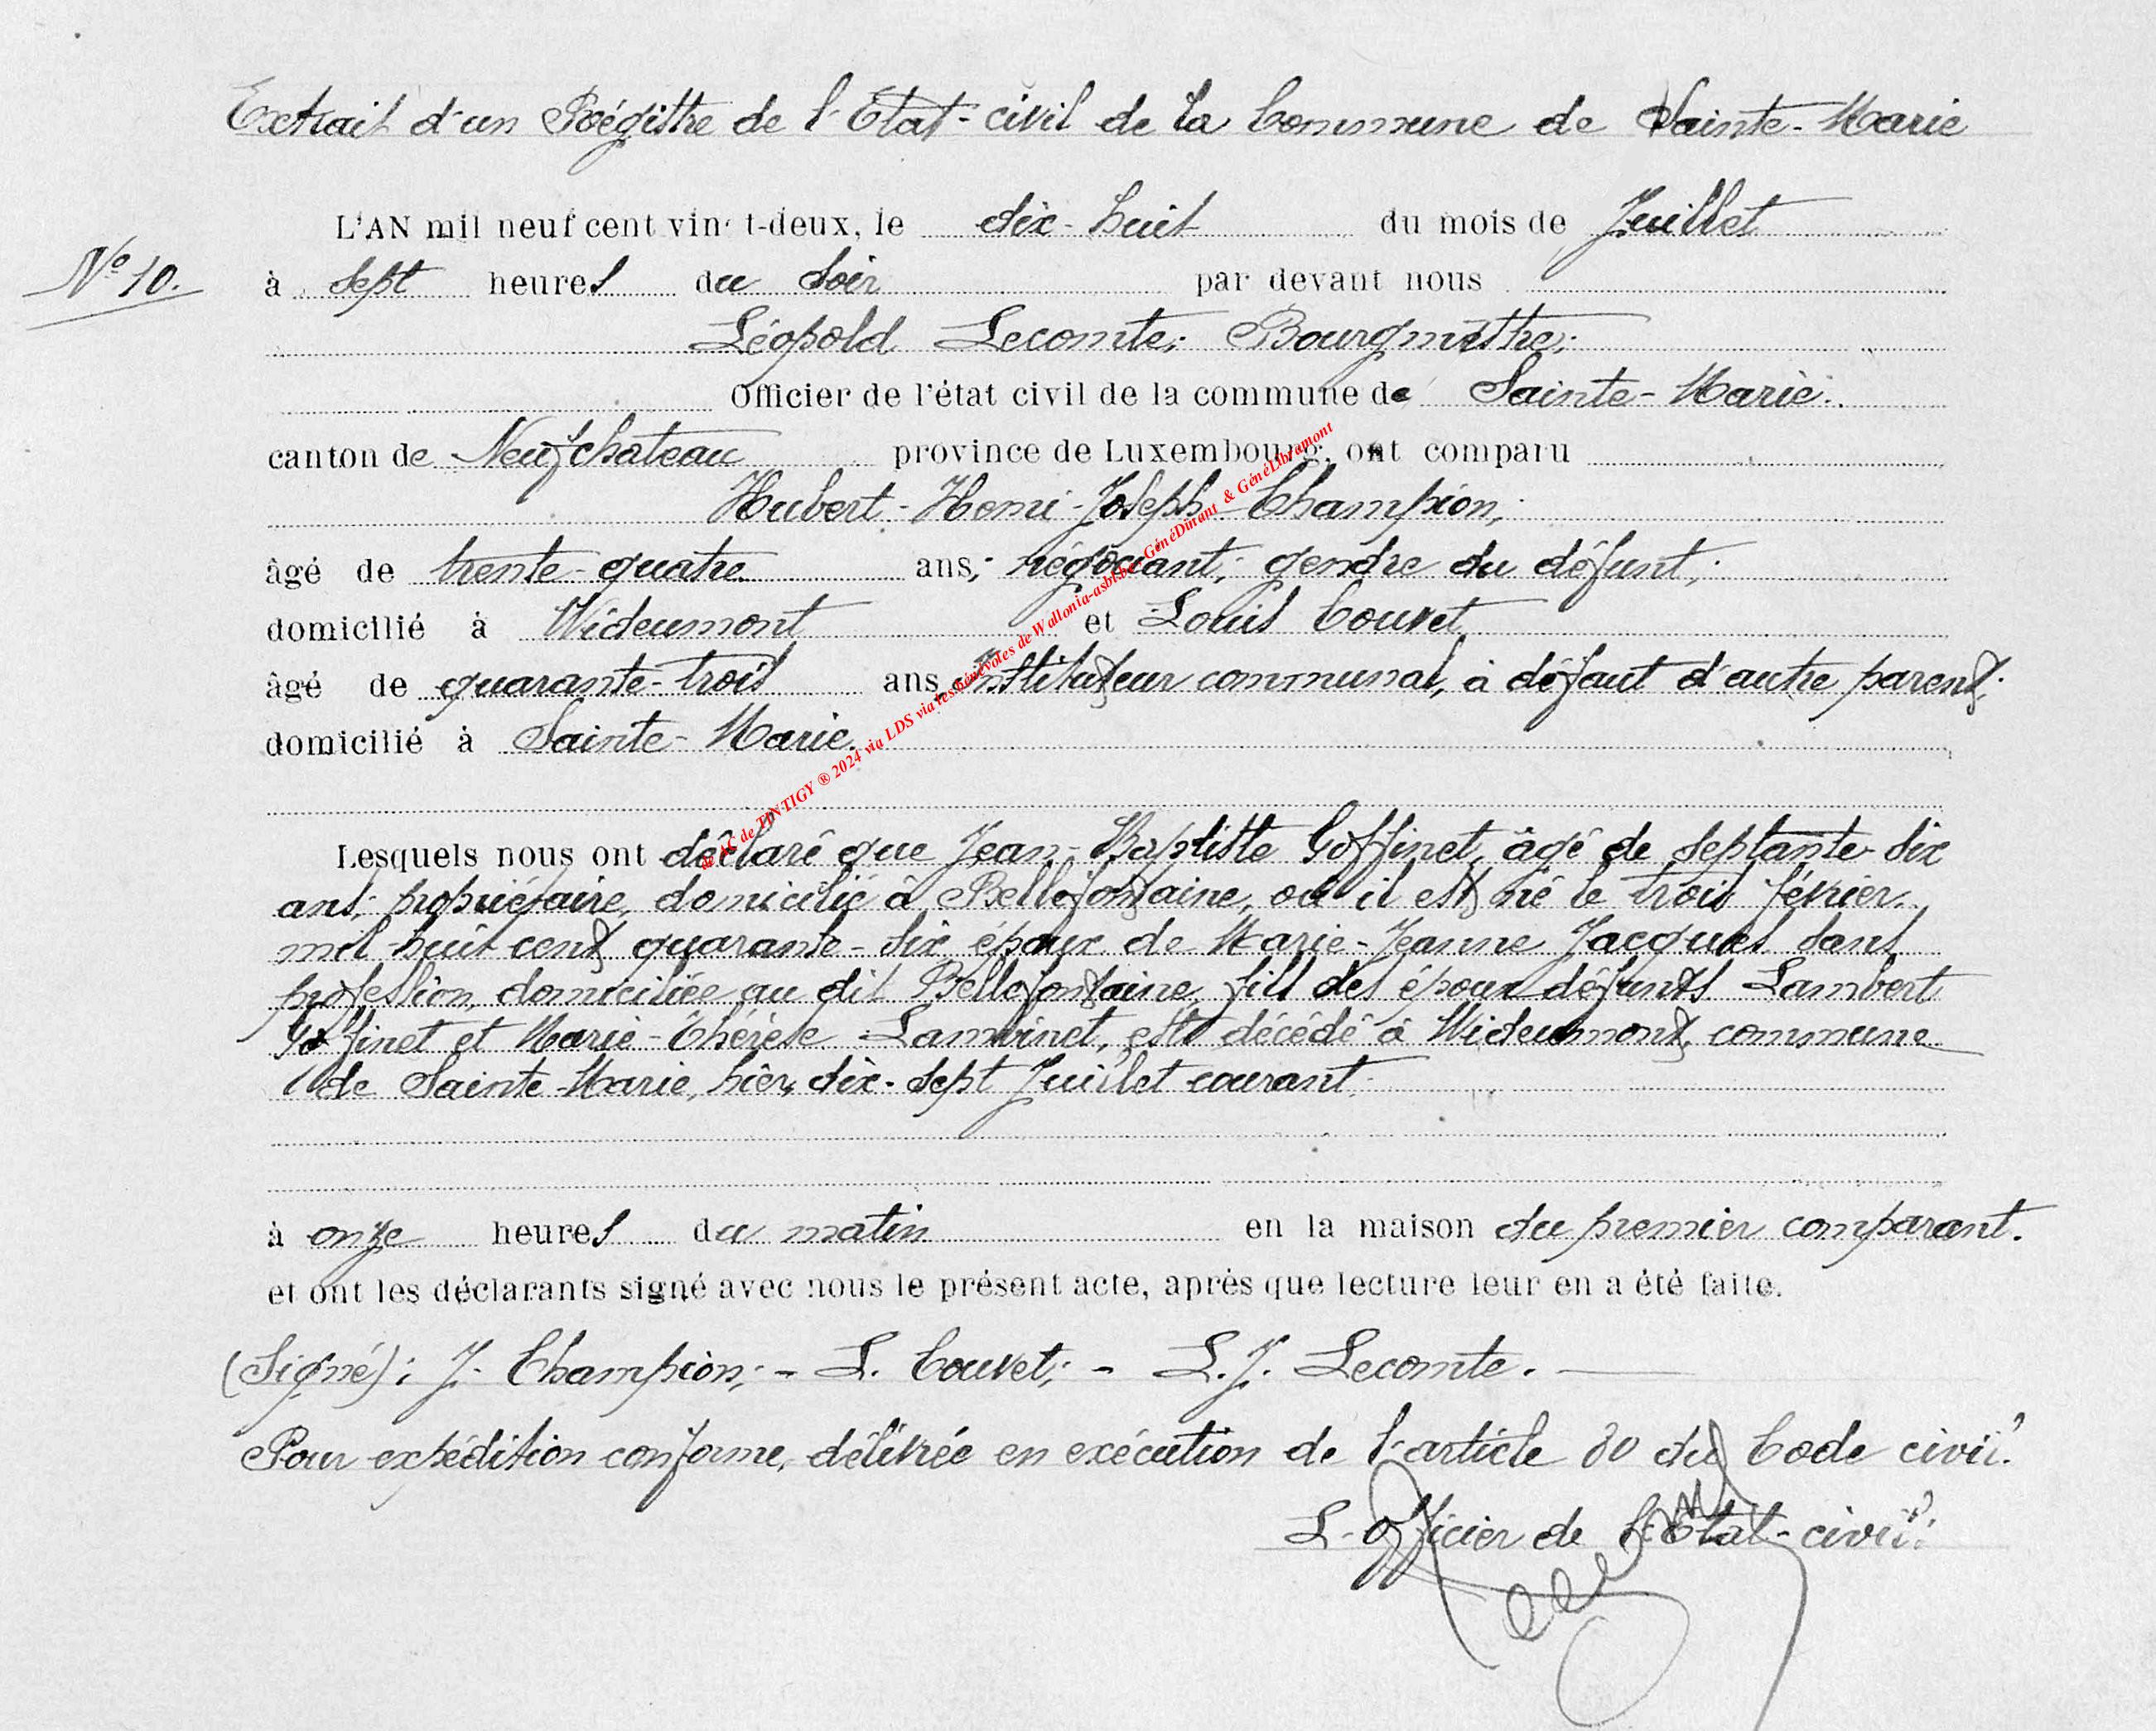 Extrait d'un Régistre de l'Etat-civil de la Commune de Sainte-Marie
L'AN mil neuf cent vingt-deux, le dix-huit du mois de Juillet
N° 10.
à sept heures du soir par devant nous
Léopold Lecomte, Bourgmestre,
Officier de l'état civil de la commune de Sainte-Marie.
canton de Neufchateau province de Luxembourg, ont comparu
Hubert-Henri-Joseph Champion,
âgé de trente-quatre ans, négociant, gendre du défunt,
domicilié à Wideumont et Louis Couvet
âgé de quarante-trois ans, instituteur communal, à défaut d'autre parent,
domicilié à Sainte-Marie.
© AC de TINTIGY ® 2024 via LDS via les bénévoles de Wallonia-asbl.be GénéDinant & GénéLibramont
Lesquels nous ont déclaré que Jean-Baptiste Goffinet, âgé de septante-six
ans, propriétaire, domicilié à Bellefontaine, où il est né le trois février
mil huit cent quarante-six, époux de Marie-Jeanne Jacques sans
profession, domiciliée au dit Bellefontaine, fils des époux défunts Lambert
Goffinet et Marie-Thérèse Lambinet, est décédé à Wideumont, commune
de Sainte-Marie, hier, dix-sept Juillet courant
à onze heures du matin en la maison du premier comparant.
et ont les déclarants signé avec nous le présent acte, après que lecture leur en a été faite.
(Signé): J. Champion; - L. Couvet; - L. J. Lecomte.
Pour expédition conforme, délivrée en exécution de l'article 80 du Code civil.
L'Officier de l'Etat-civil: